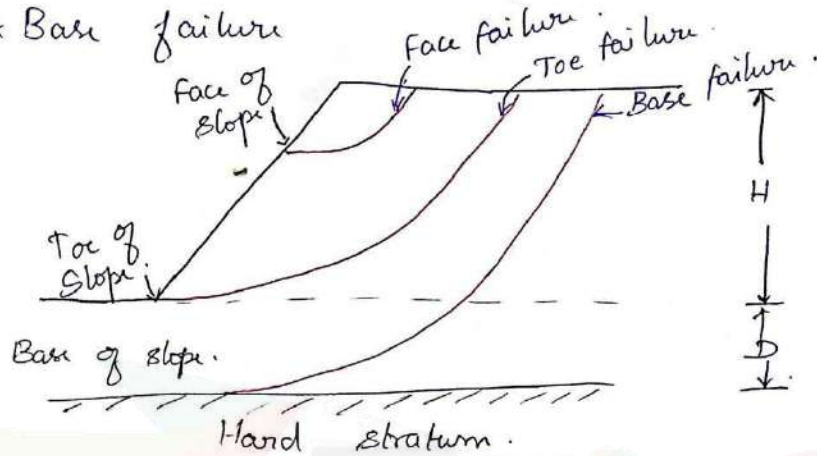 * Base failure
Face failure.
Toe failure.
Base failure.
Face of
slope
H
Toe of
Slope.
Base of slope.
D
Hard stratum.